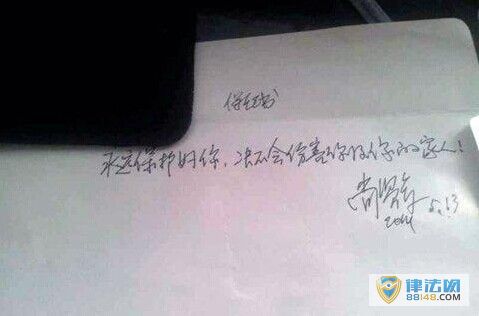 保证书
永远保护好你，决不会伤害你及你的家人！
2014 5.13
律法网
88148.com